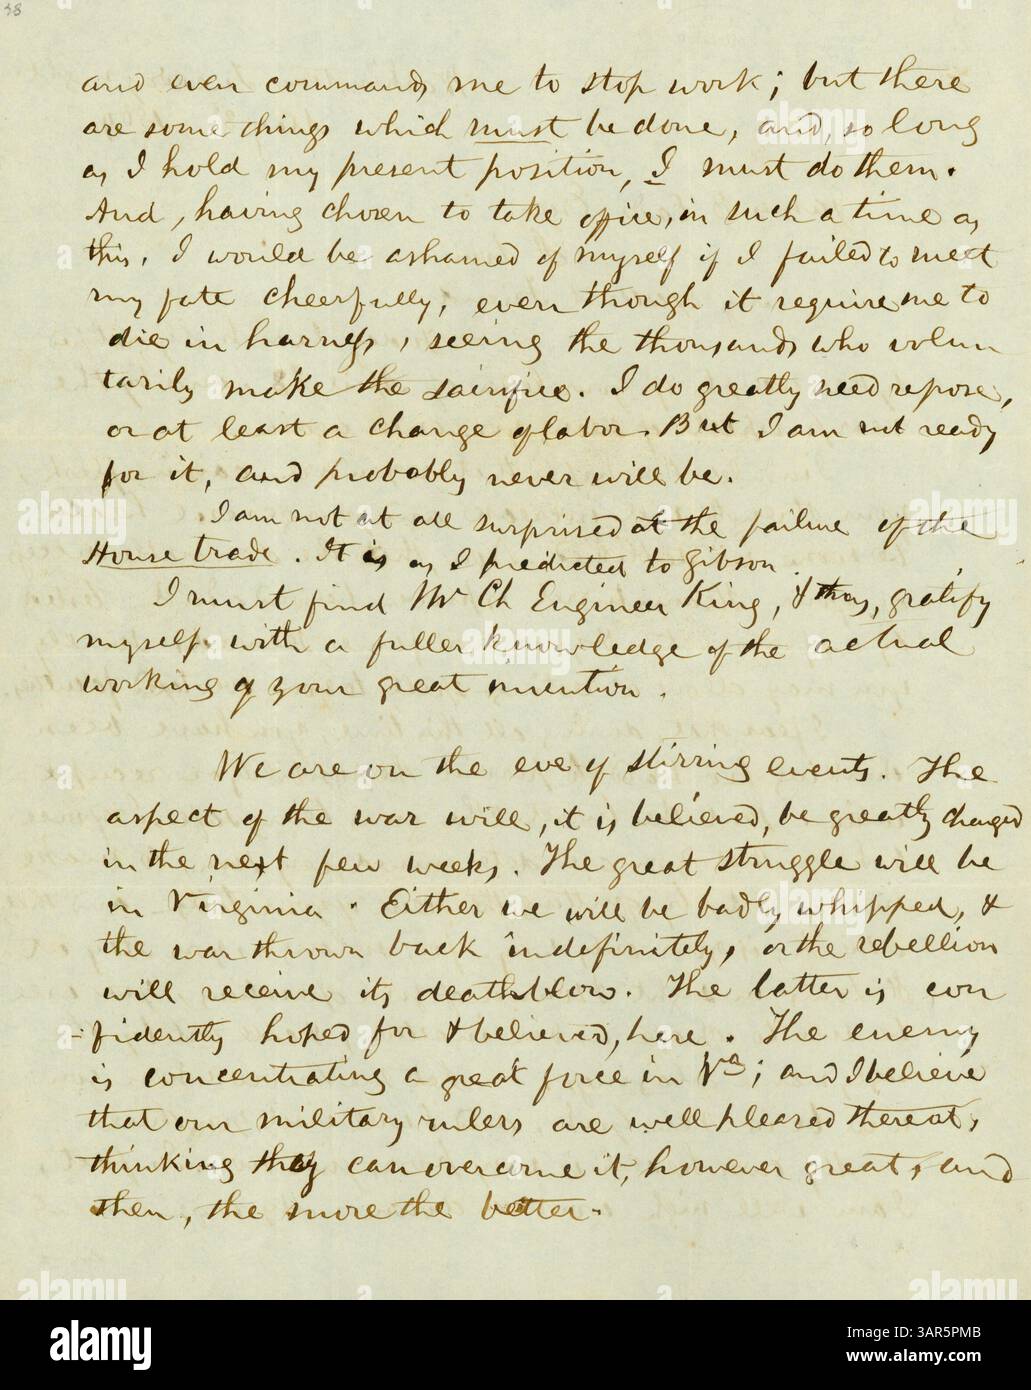 38
and even commands me to stop work; but there
are some things which must be done, and, so long
as I hold my present position, I must do them.
And, having chosen to take office, in such a time as
this, I would be ashamed of myself if I failed to meet
my fate cheerfully, even though it require me to
die in harness, seeing the thousands who volun
tarily make the sacrifice. I do greatly need repose,
or at least a change of labor. But I am not ready
for it, and probably never will be.
I am not at all surprised at the failure of the
House trade. It is as I predicted to Gibson.
I must find Mr Ch Engineer King, & thus, gratify
myself with a fuller knowledge of the actual
working of your great invention.
We are on the eve of stirring events. The
aspect of the war will, it is believed, be greatly changed
in the next few weeks. The great struggle will be
in Virginia. Either we will be badly whipped, &
the war thrown back indefinitely, or the rebellion
will receive its deathblow. The latter is con
=fidently hoped for & believed, here. The enemy
is concentrating a great force in Va; and I believe
that our military rulers are well pleased thereat,
thinking they can overcome it, however great, and
then, the more the better.
alamy
Image ID: 3AR5PMB
www.alamy.com